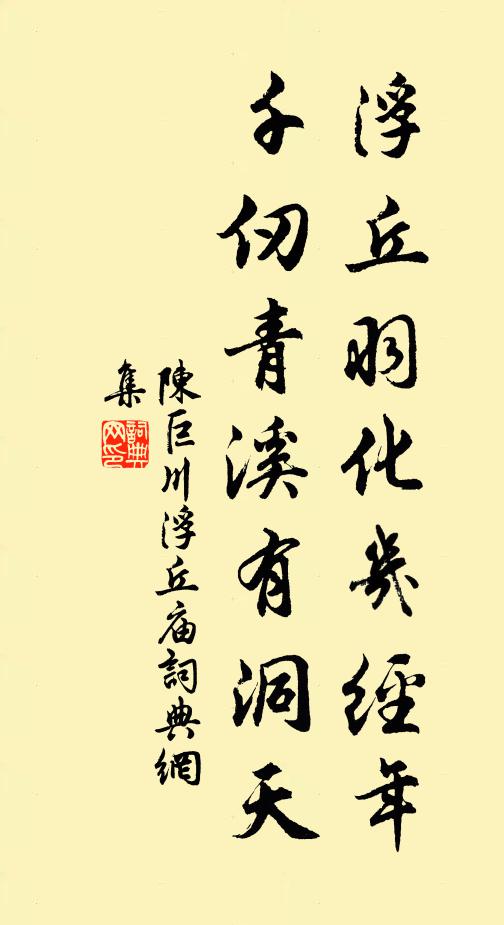 浮丘羽化幾經年
千仞青溪有洞天
陳巨川浮丘庙詞典網
集
詞典
网印